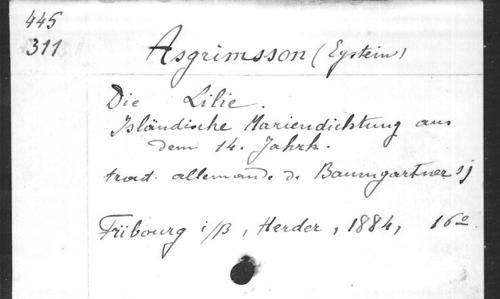 445
311
Asgrimsson (Eystein)
Die Lilie.
Isländische Mariendichtung aus
dem 14. Jahrh.
trad. allemande de Baumgartner sj
Fribourg i/B, Herder, 1884, 16o